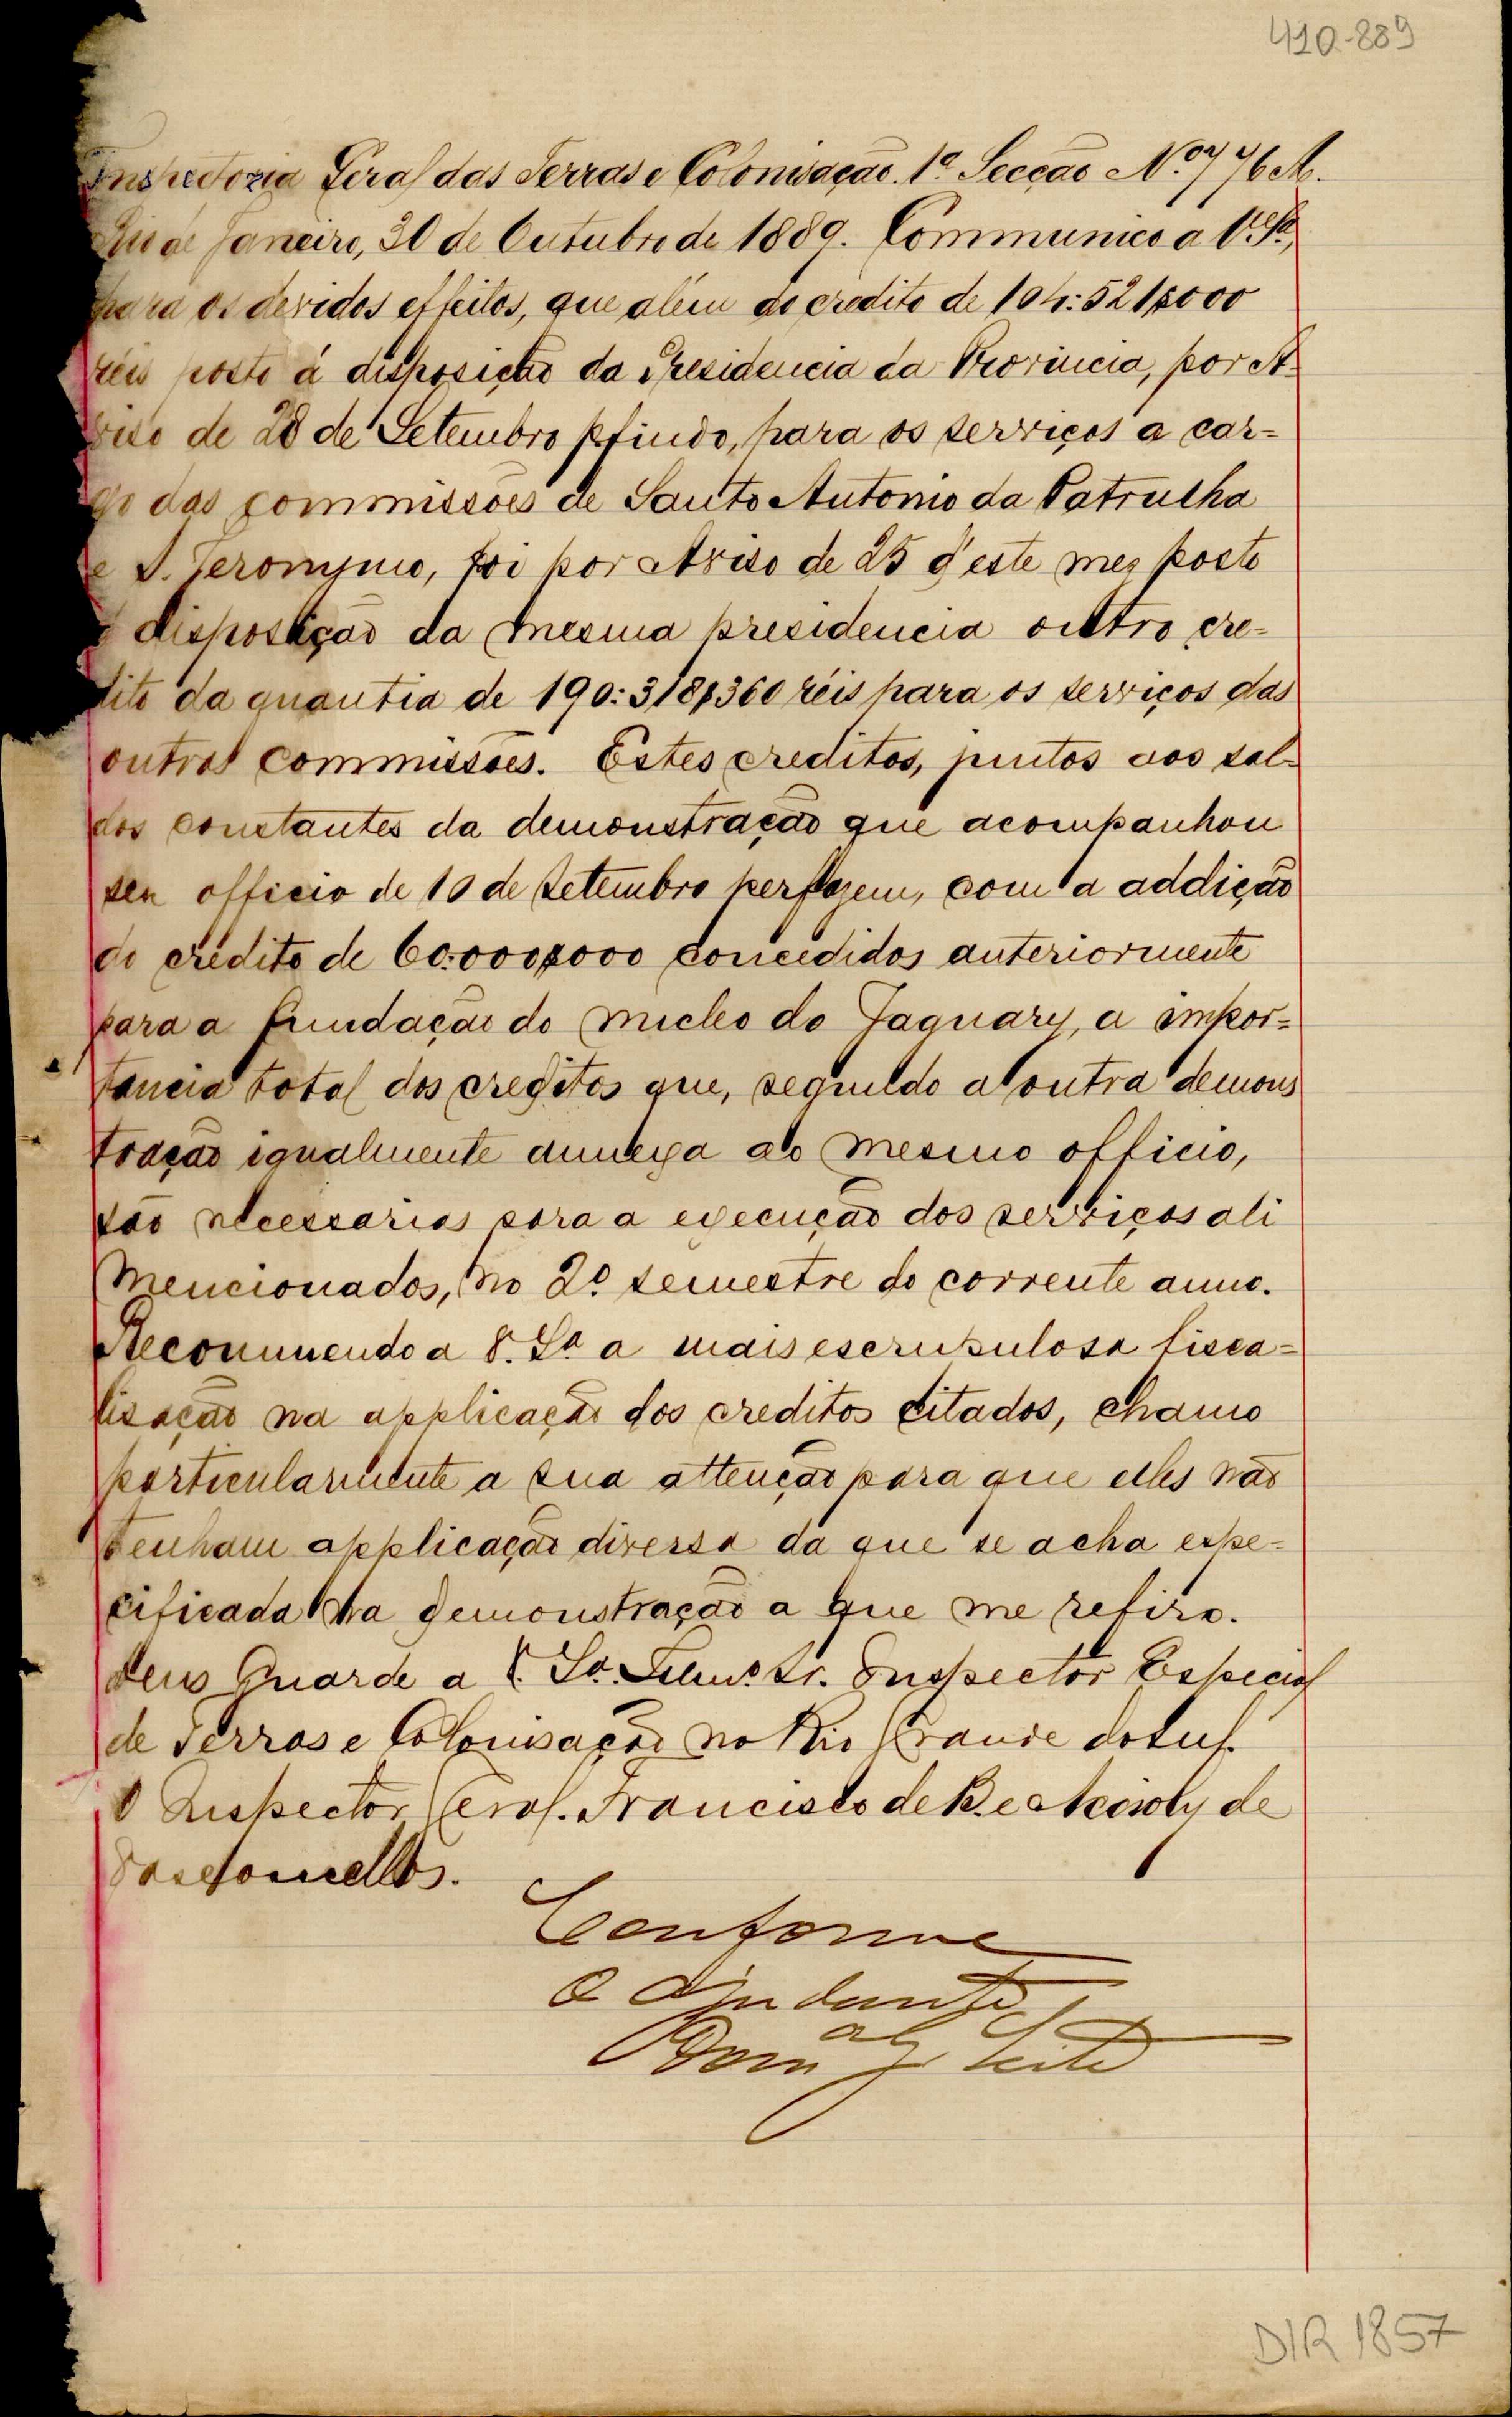 410-889
Inspectoria Geral das Terras e Colonisação. 1ª Secção Nº 776 A.
Rio de Janeiro, 30 de Outubro de 1889. Communico a V. Sª,
para os devidos effeitos, que além do credito de 104:521$000
réis posto á disposição da Presidencia da Provincia, por A-
viso de 28 de Setembro pfindo, para os serviços a car-
go das commissões de Santo Antonio da Patrulha
e S. Jeronymo, foi por Aviso de 25 d'este mez posto
á disposição da mesma presidencia outro cre-
dito da quantia de 190:318$360 réis para os serviços das
outras commissões. Estes creditos, juntos aos sal-
dos constantes da demonstração que acompanhou
seu officio de 10 de Setembro perfazem, com a addição
do credito de 60:000$000 concedidos anteriormente
para a fundação do nucleo do Jaguary, a impor-
tancia total dos creditos que, segundo a outra demons
tração igualmente annexa ao mesmo officio,
são necessarios para a execução dos serviços ali
mencionados, no 2º semestre do corrente anno.
Recommendo a V. Sª a mais escrupulosa fisca-
lisação na applicação dos creditos citados, chamo
particularmente a sua attenção para que elles não
tenham applicação diversa da que se acha espe-
cificada na demonstração a que me refiro.
Deus Guarde a V. Sª. Illmo. Sr. Inspector Especial
de Terras e Colonisação no Rio Grande do Sul.
O Inspector Geral. Francisco de B. e Accioly de
Vasconcellos.
Conforme
O Ajudante
Leite
DIR 1857